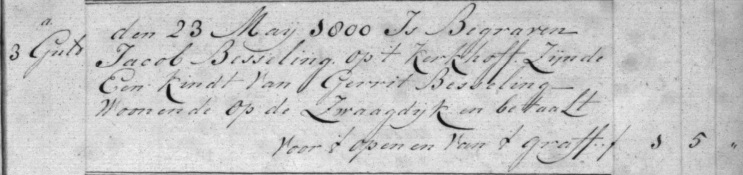 den 23 Maÿ 1800 Is Begraven
3 Gulds
Jacob Besseling op't Kerkhoff Zijnde
Een kindt Van Gerrit Besseling
Woonende op de Zwaagdÿk en betaalt
Voor 't openen Van 't graff. f 1 5 "